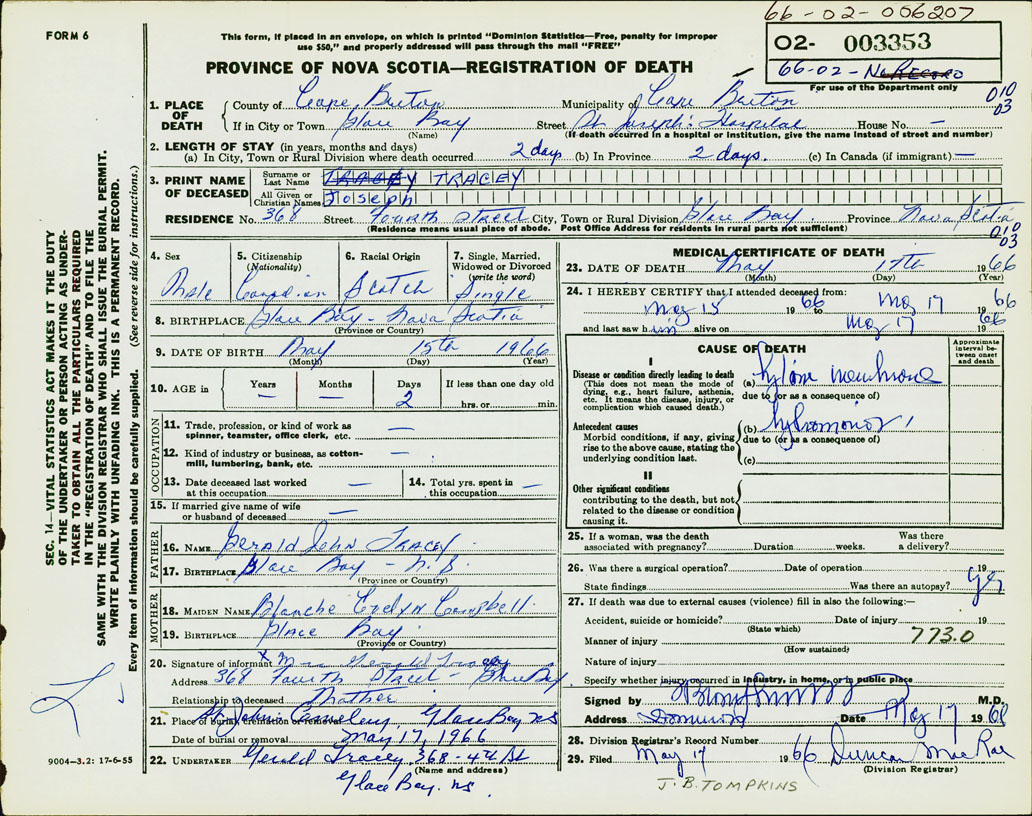 66-02-006207
FORM 6
This form, if placed in an envelope, on which is printed "Dominion Statistics—Free, penalty for improper
use $50," and properly addressed will pass through the mail "FREE"
02- 003353
PROVINCE OF NOVA SCOTIA—REGISTRATION OF DEATH
66-02-No RECORD
For use of the Department only
010
03
1. PLACE OF DEATH County of Cape Breton Municipality of Cape Breton
If in City or Town Glace Bay Street St. Joseph's Hospital House No. —
(Name) (If death occurred in a hospital or institution, give the name instead of street and number)
2. LENGTH OF STAY (in years, months and days)
(a) In City, Town or Rural Division where death occurred 2 days (b) In Province 2 days. (c) In Canada (if immigrant) —
3. PRINT NAME OF DECEASED Surname or Last Name TRACEY TRACEY
All Given or Christian Names Joseph
RESIDENCE No. 368 Street Fourth Street City, Town or Rural Division Glace Bay Province Nova Scotia
(Residence means usual place of abode. Post Office Address for residents in rural parts not sufficient)
010
03
4. Sex 5. Citizenship (Nationality) 6. Racial Origin 7. Single, Married, Widowed or Divorced (write the word)
Male Canadian Scotch Single
8. BIRTHPLACE Glace Bay - Nova Scotia
(Province or Country)
9. DATE OF BIRTH May 15th 1966
(Month) (Day) (Year)
10. AGE in Years Months Days If less than one day old
— — 2 hrs. or min.
OCCUPATION
11. Trade, profession, or kind of work as
spinner, teamster, office clerk, etc. —
12. Kind of industry or business, as cotton-
mill, lumbering, bank, etc. —
13. Date deceased last worked
at this occupation — 14. Total yrs. spent in
this occupation —
15. If married give name of wife
or husband of deceased —
FATHER
16. NAME Gerald John Tracey
17. BIRTHPLACE Glace Bay - N.S.
(Province or Country)
MOTHER
18. MAIDEN NAME Blanche Evelyn Campbell
19. BIRTHPLACE Glace Bay
(Province or Country)
20. Signature of informant x Mrs Gerald Tracey
Address 368 Fourth Street - Glace Bay
Relationship to deceased Mother
21. Place of burial, cremation or removal Glace Bay NS
Date of burial or removal May 17, 1966
22. UNDERTAKER Gerald Tracey 368-4th St
(Name and address)
Glace Bay. NS.
MEDICAL CERTIFICATE OF DEATH
23. DATE OF DEATH May 17th 1966
(Month) (Day) (Year)
24. I HEREBY CERTIFY that I attended deceased from:
May 15 66 May 17 1966
and last saw him alive on May 17 1966
CAUSE OF DEATH
Approximate interval between onset and death
I
Disease or condition directly leading to death
(This does not mean the mode of
dying, e.g., heart failure, asthenia,
etc. It means the disease, injury, or
complication which caused death.)
(a) hyaline membrane
due to (or as a consequence of)
Antecedent causes
Morbid conditions, if any, giving
rise to the above cause, stating the
underlying condition last.
(b) hydramnios
due to (or as a consequence of)
(c)
II
Other significant conditions
contributing to the death, but not
related to the disease or condition
causing it.
25. If a woman, was the death
associated with pregnancy? Duration weeks. Was there
a delivery?
26. Was there a surgical operation? Date of operation 19
State findings Was there an autopsy? yes
27. If death was due to external causes (violence) fill in also the following:—
Accident, suicide or homicide? Date of injury 19
(State which)
Manner of injury 773.0
(How sustained)
Nature of injury
Specify whether injury occurred in Industry, in home, or in public place
Signed by M.D.
Address Dominion Date May 17 1966
28. Division Registrar's Record Number
29. Filed May 17 1966 Duncan MacRae
(Division Registrar)
J.B. TOMPKINS
SEC. 14—VITAL STATISTICS ACT MAKES IT THE DUTY
OF THE UNDERTAKER OR PERSON ACTING AS UNDER-
TAKER TO OBTAIN ALL THE PARTICULARS REQUIRED
IN THE "REGISTRATION OF DEATH" AND TO FILE THE
SAME WITH THE DIVISION REGISTRAR WHO SHALL ISSUE THE BURIAL PERMIT.
WRITE PLAINLY WITH UNFADING INK. THIS IS A PERMANENT RECORD.
Every item of information should be carefully supplied. (See reverse side for instructions.)
9004—3.2: 17-6-55